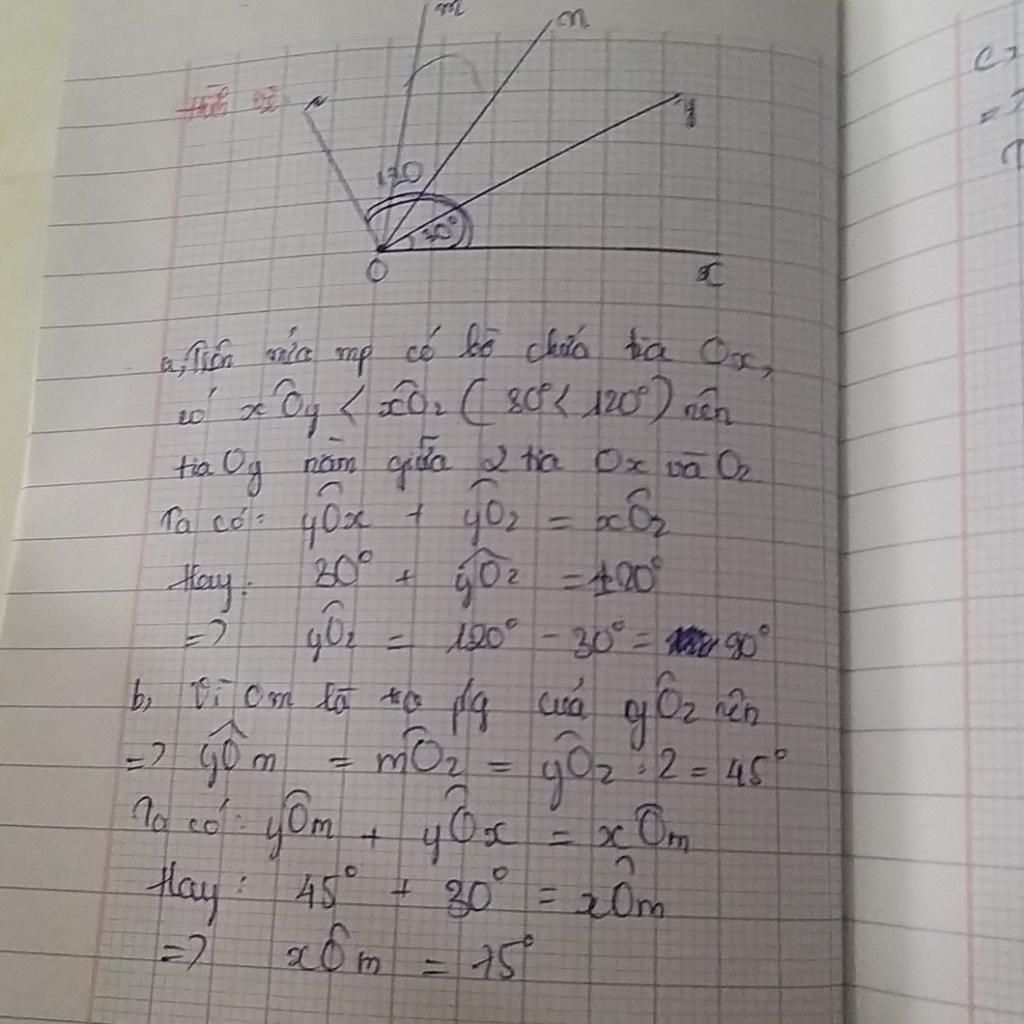 m
n
y
120
30°
O
x
a, Trên nửa mp có bờ chứa tia Ox,
có xÔy < xÔz ( 30° < 120° ) nên
tia Oy nằm giữa 2 tia Ox và Oz
Ta có: yÔx + yÔz = xÔz
Hay: 30° + yÔz = 120°
=> yÔz = 120° - 30° = 90°
b, Vì Om là tia pg của yÔz nên
=> yÔm = mÔz = yÔz : 2 = 45°
Ta có: yÔm + yÔx = xÔm
Hay: 45° + 30° = xÔm
=> xÔm = 75°
c,
=